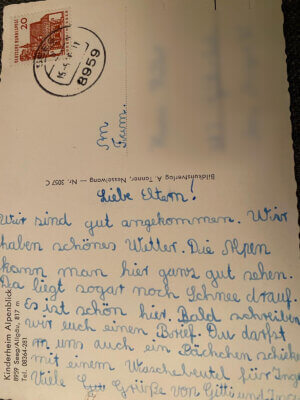 DEUTSCHE BUNDESPOST
20
8959
An
Fam.
Bildkunstverlag A. Tanner, Nesselwang — Nr. 3057 C
Liebe Eltern!
Wir sind gut angekommen. Wir
haben schönes Wetter. Die Alpen
kann man hier ganz gut sehen.
Da liegt sogar noch Schnee drauf.
Es ist schön hier. Bald schreiben
wir euch einen Brief. Du darfst
uns auch ein Päckchen schicken
mit einem Waschebeutel für Inge
Viele Grüße von Gitti und Inge
Kinderheim Alpenblick
8959 Seeg/Allgäu, 817 m
Tel. 08364/281